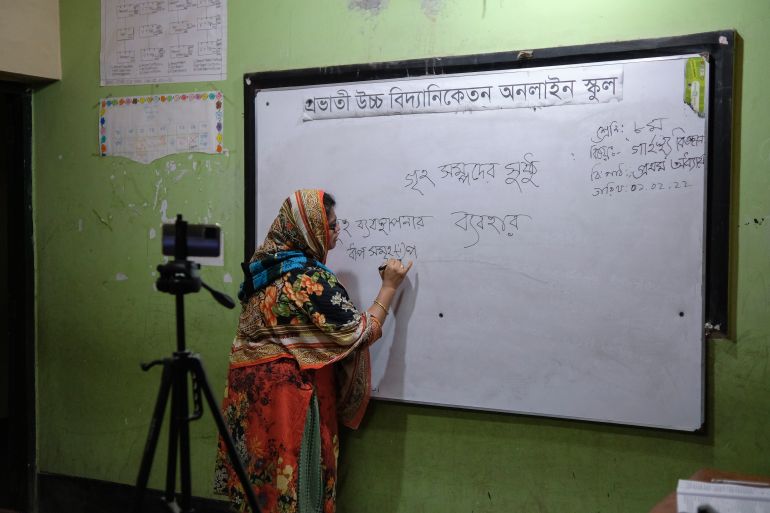 প্রভাতী উচ্চ বিদ্যানিকেতন অনলাইন স্কুল
শ্রেণি: ৮ম
বিষয়:- গার্হস্থ্য বিজ্ঞান
বি: পাঠ:- প্রথম অধ্যায়
তারিখ: ০২.০২.২২
গৃহ সম্পদের সুষ্ঠু
ব্যবহার
গৃহ ব্যবস্থাপনার
ধাপ সমূহ